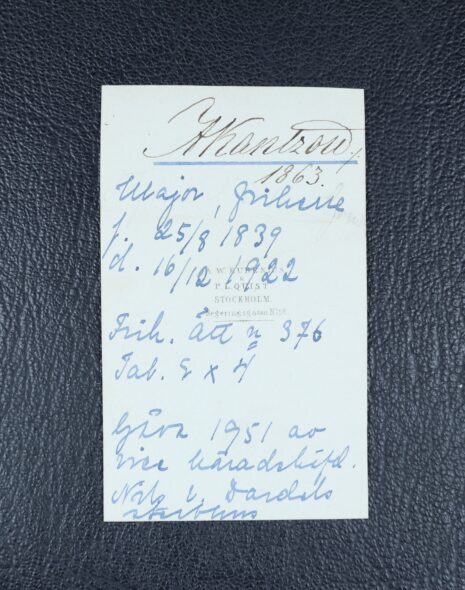 A Kantzow
1863.
Major, friherre
f. 25/8 1839
d. 16/12 1922
W. EURENIUS
&
P. L. QUIST
STOCKHOLM.
Regeringsgatan N:
Frih. Ätt n 376
Tab. 5 x 4
Gåva 1951 av
vice häradshöfd.
Nils v. Dardels
sterbhus